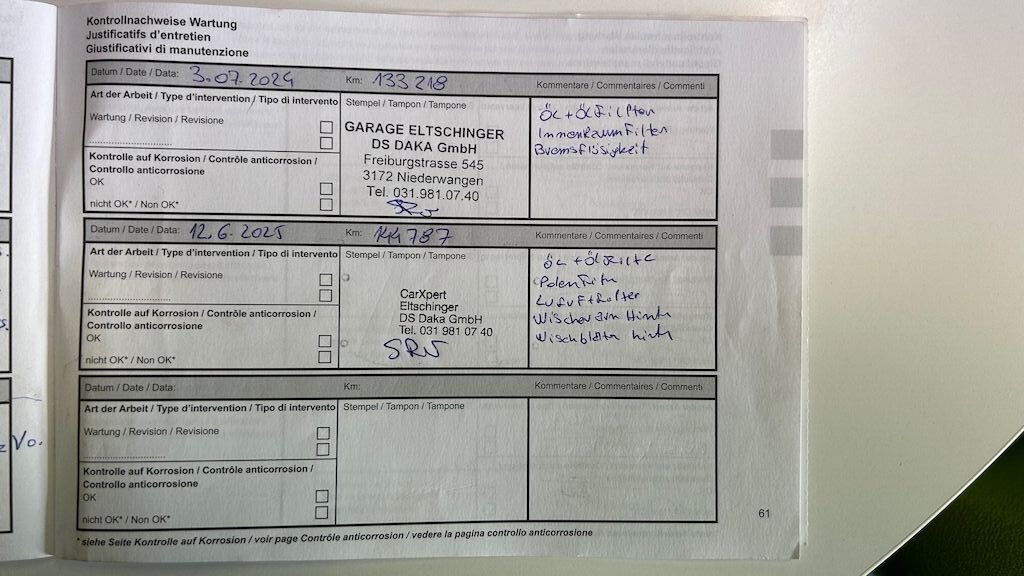 Kontrollnachweise Wartung
Justificatifs d'entretien
Giustificativi di manutenzione
Datum / Date / Data: 3.07.2024 Km: 133 218 Kommentare / Commentaires / Commenti
Art der Arbeit / Type d'intervention / Tipo di intervento Stempel / Tampon / Tampone
Wartung / Revision / Revisione
Kontrolle auf Korrosion / Contrôle anticorrosion /
Controllo anticorrosione
OK
nicht OK* / Non OK*
GARAGE ELTSCHINGER
DS DAKA GmbH
Freiburgstrasse 545
3172 Niederwangen
Tel. 031.981.07.40
SRV
ÖL + ÖLFilter
InnenRaumFilter
Bremsflüssigkeit
Datum / Date / Data: 12.6.2025 Km: 144787 Kommentare / Commentaires / Commenti
Art der Arbeit / Type d'intervention / Tipo di intervento Stempel / Tampon / Tampone
Wartung / Revision / Revisione
Kontrolle auf Korrosion / Contrôle anticorrosion /
Controllo anticorrosione
OK
nicht OK* / Non OK*
CarXpert
Eltschinger
DS Daka GmbH
Tel. 031 981 07 40
SRV
ÖL + ÖLFilte
Wischblätter hinten
Datum / Date / Data: Km: Kommentare / Commentaires / Commenti
Art der Arbeit / Type d'intervention / Tipo di intervento Stempel / Tampon / Tampone
Wartung / Revision / Revisione
Kontrolle auf Korrosion / Contrôle anticorrosion /
Controllo anticorrosione
OK
nicht OK* / Non OK*
* siehe Seite Kontrolle auf Korrosion / voir page Contrôle anticorrosion / vedere la pagina controllo anticorrosione
61